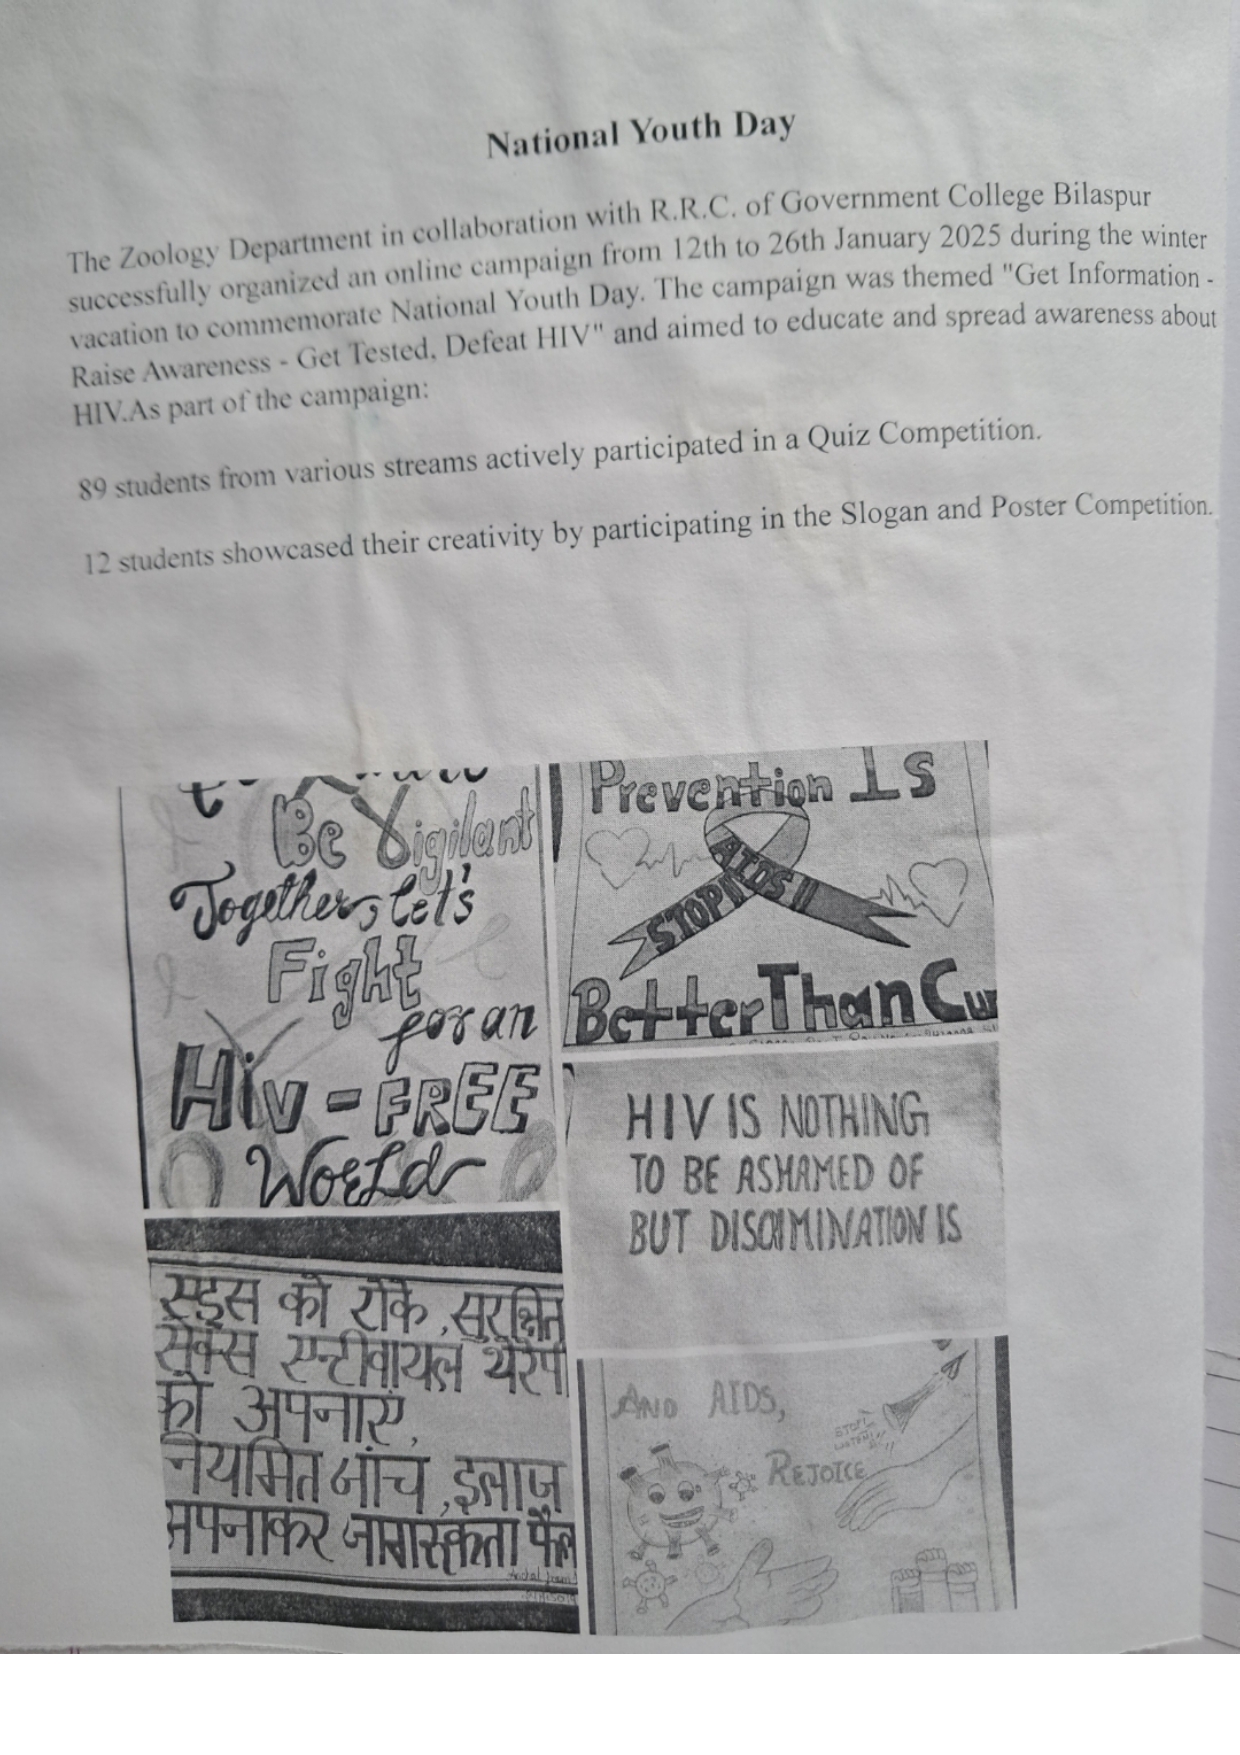 National Youth Day
The Zoology Department in collaboration with R.R.C. of Government College Bilaspur
successfully organized an online campaign from 12th to 26th January 2025 during the winter
vacation to commemorate National Youth Day. The campaign was themed "Get Information -
Raise Awareness - Get Tested, Defeat HIV" and aimed to educate and spread awareness about
HIV.As part of the campaign:
89 students from various streams actively participated in a Quiz Competition.
12 students showcased their creativity by participating in the Slogan and Poster Competition.
Be Vigilant
Together, let's
Fight
for an
HiV - FREE
WORLD
Prevention Is
STOP AIDS!!
Better Than Cur
HIV IS NOTHING
TO BE ASHAMED OF
BUT DISCRIMINATION IS
एड्स को रोके, सुरक्षित
सेक्स एन्टीवायल थेरेपी
को अपनाएं,
नियमित जांच, इलाज
अपनाकर जागरूकता फैल
AND AIDS,
STOP!
LISTEN!!
REJOICE